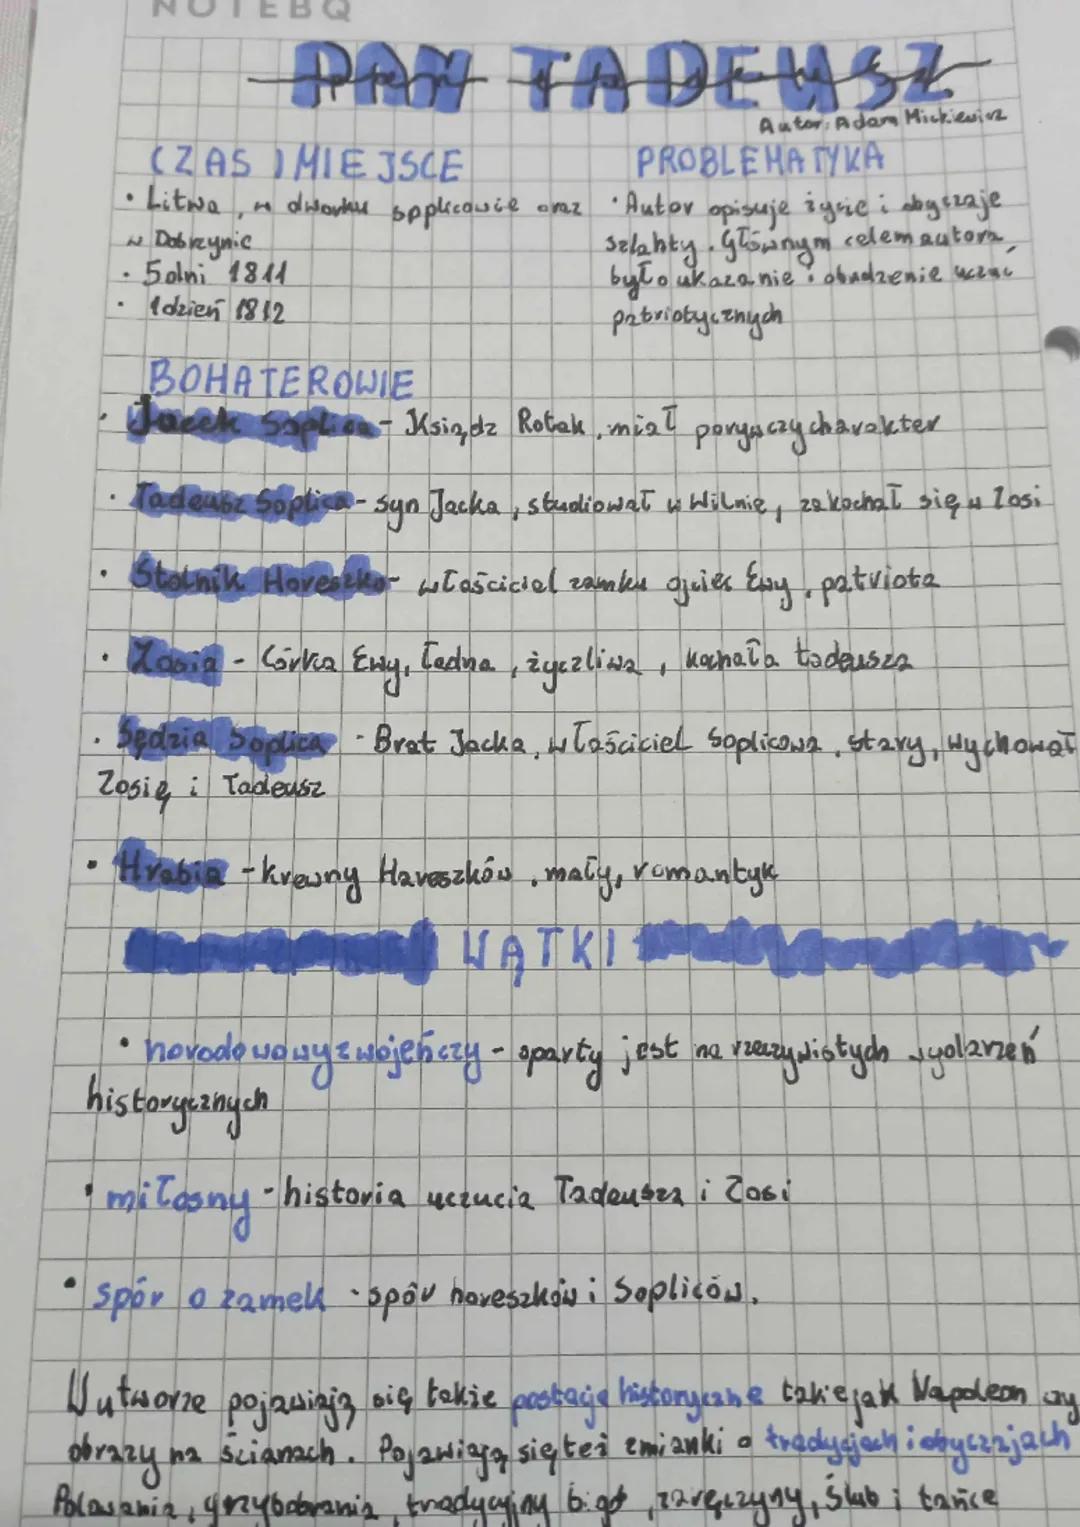 NOTEBQ
PAN TADEUSZ
Autor: Adam Mickiewicz
CZAS I MIEJSCE
• Litwa, w dworku sopplicowie oraz
w Dobrzynic
• 5 dni 1811
• 1 dzień 1812
PROBLEMATYKA
• Autor opisuje życie i obyczaje
szlahty. Głównym celem autora
było ukazanie i obudzenie uczuć
patriotycznych
BOHATEROWIE
• Jacek Soplica - Ksiądz Robak, miał porywczy charakter
• Tadeusz Soplica - syn Jacka, studiował w Wilnie, zakochał się w Zosi
• Stolnik Horeszko - właściciel zamku ojciec Ewy, patriota
• Zosia - Córka Ewy, ładna, życzliwa, kochała tadeusza
• Sędzia Soplica - Brat Jacka, właściciel Soplicowa, stary, wychował
Zosię i Tadeusz
• Hrabia - krewny Hareszków, mały, romantyk
WĄTKI
• narodowowyzwojeńczy - oparty jest na rzeczywistych wydarzeń
historycznych
• miłosny - historia uczucia Tadeusza i Zosi
• spór o zamek - spór horeszków i Sopliców.
W utworze pojawiają się takie postacje historyczne takie jak Napoleon czy
obrazy na ścianach. Pojawiają się też zmianki o tradycjach i obyczajach
Polowania, grzybobrania, tradycyjny bigos, zaręczyny, ślub i tańce